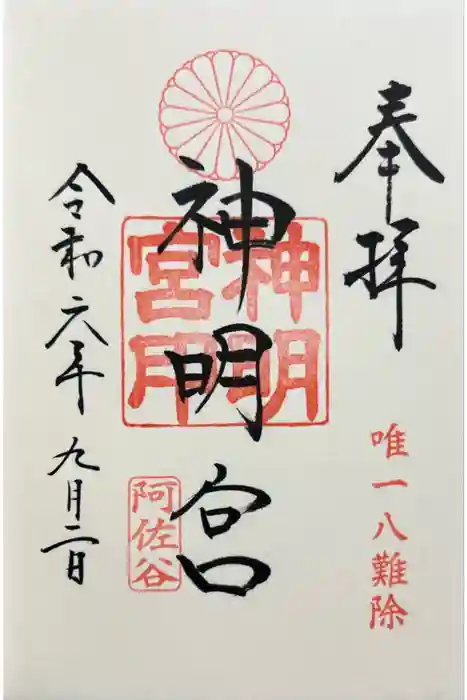 奉拝
唯一八難除
神明宮
神明宮印
阿佐谷
令和六年九月二日